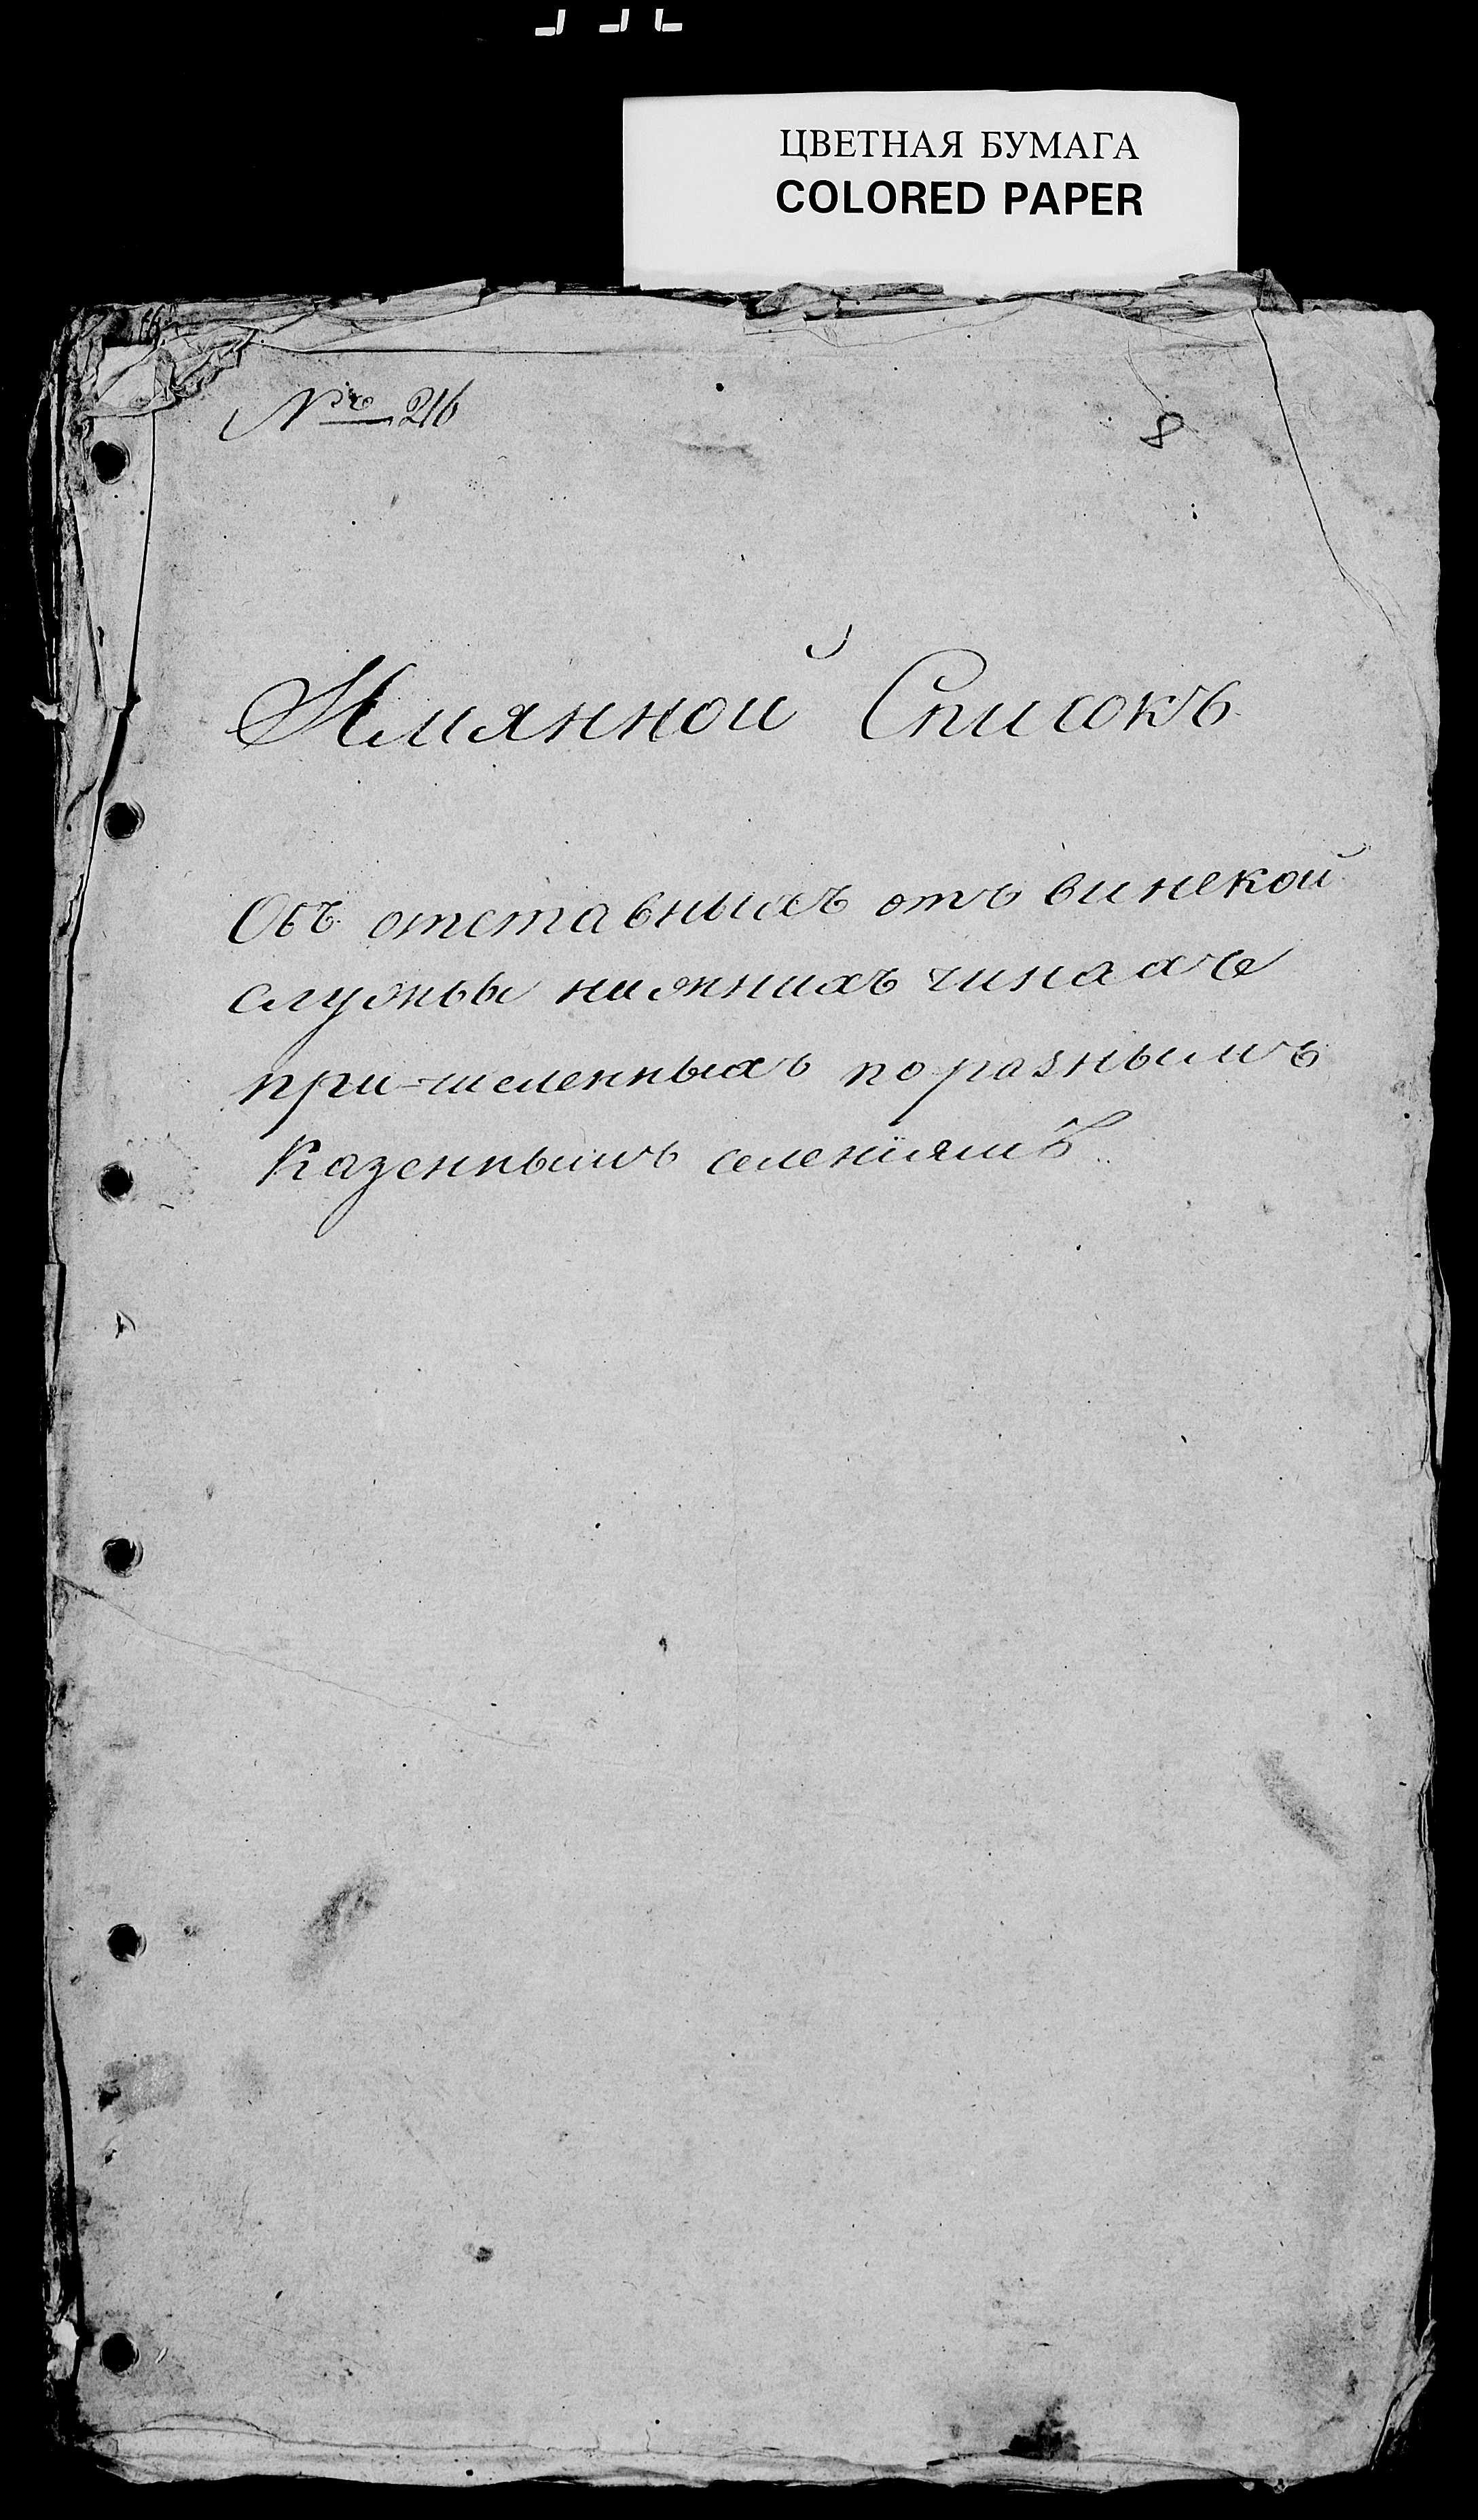 ЦВЕТНАЯ БУМАГА
COLORED PAPER
№ 216
8
Имянной Списокъ
Объ отставныхъ отъ воинской
службы нижнихъ чинахъ
причисленныхъ по разнымъ
Казеннымъ селеніямъ